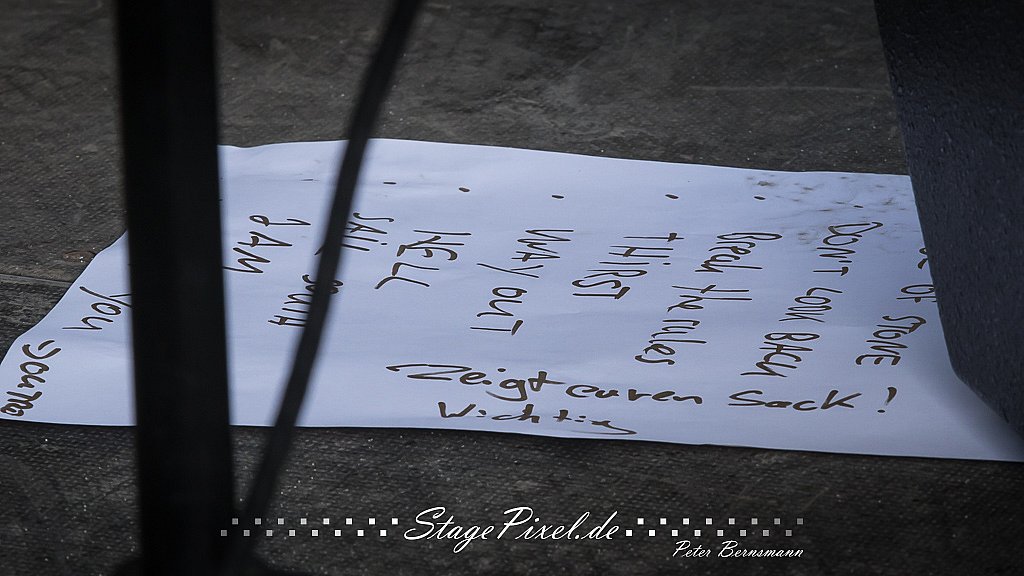 OF STONE
DON'T LOOK BACK
Break the rules
THIRST
WAY OUT
HELL
SAIL
JAM
You
Zeigt euren Sack!
Wichtig
StagePixel.de
Peter Bernsmann